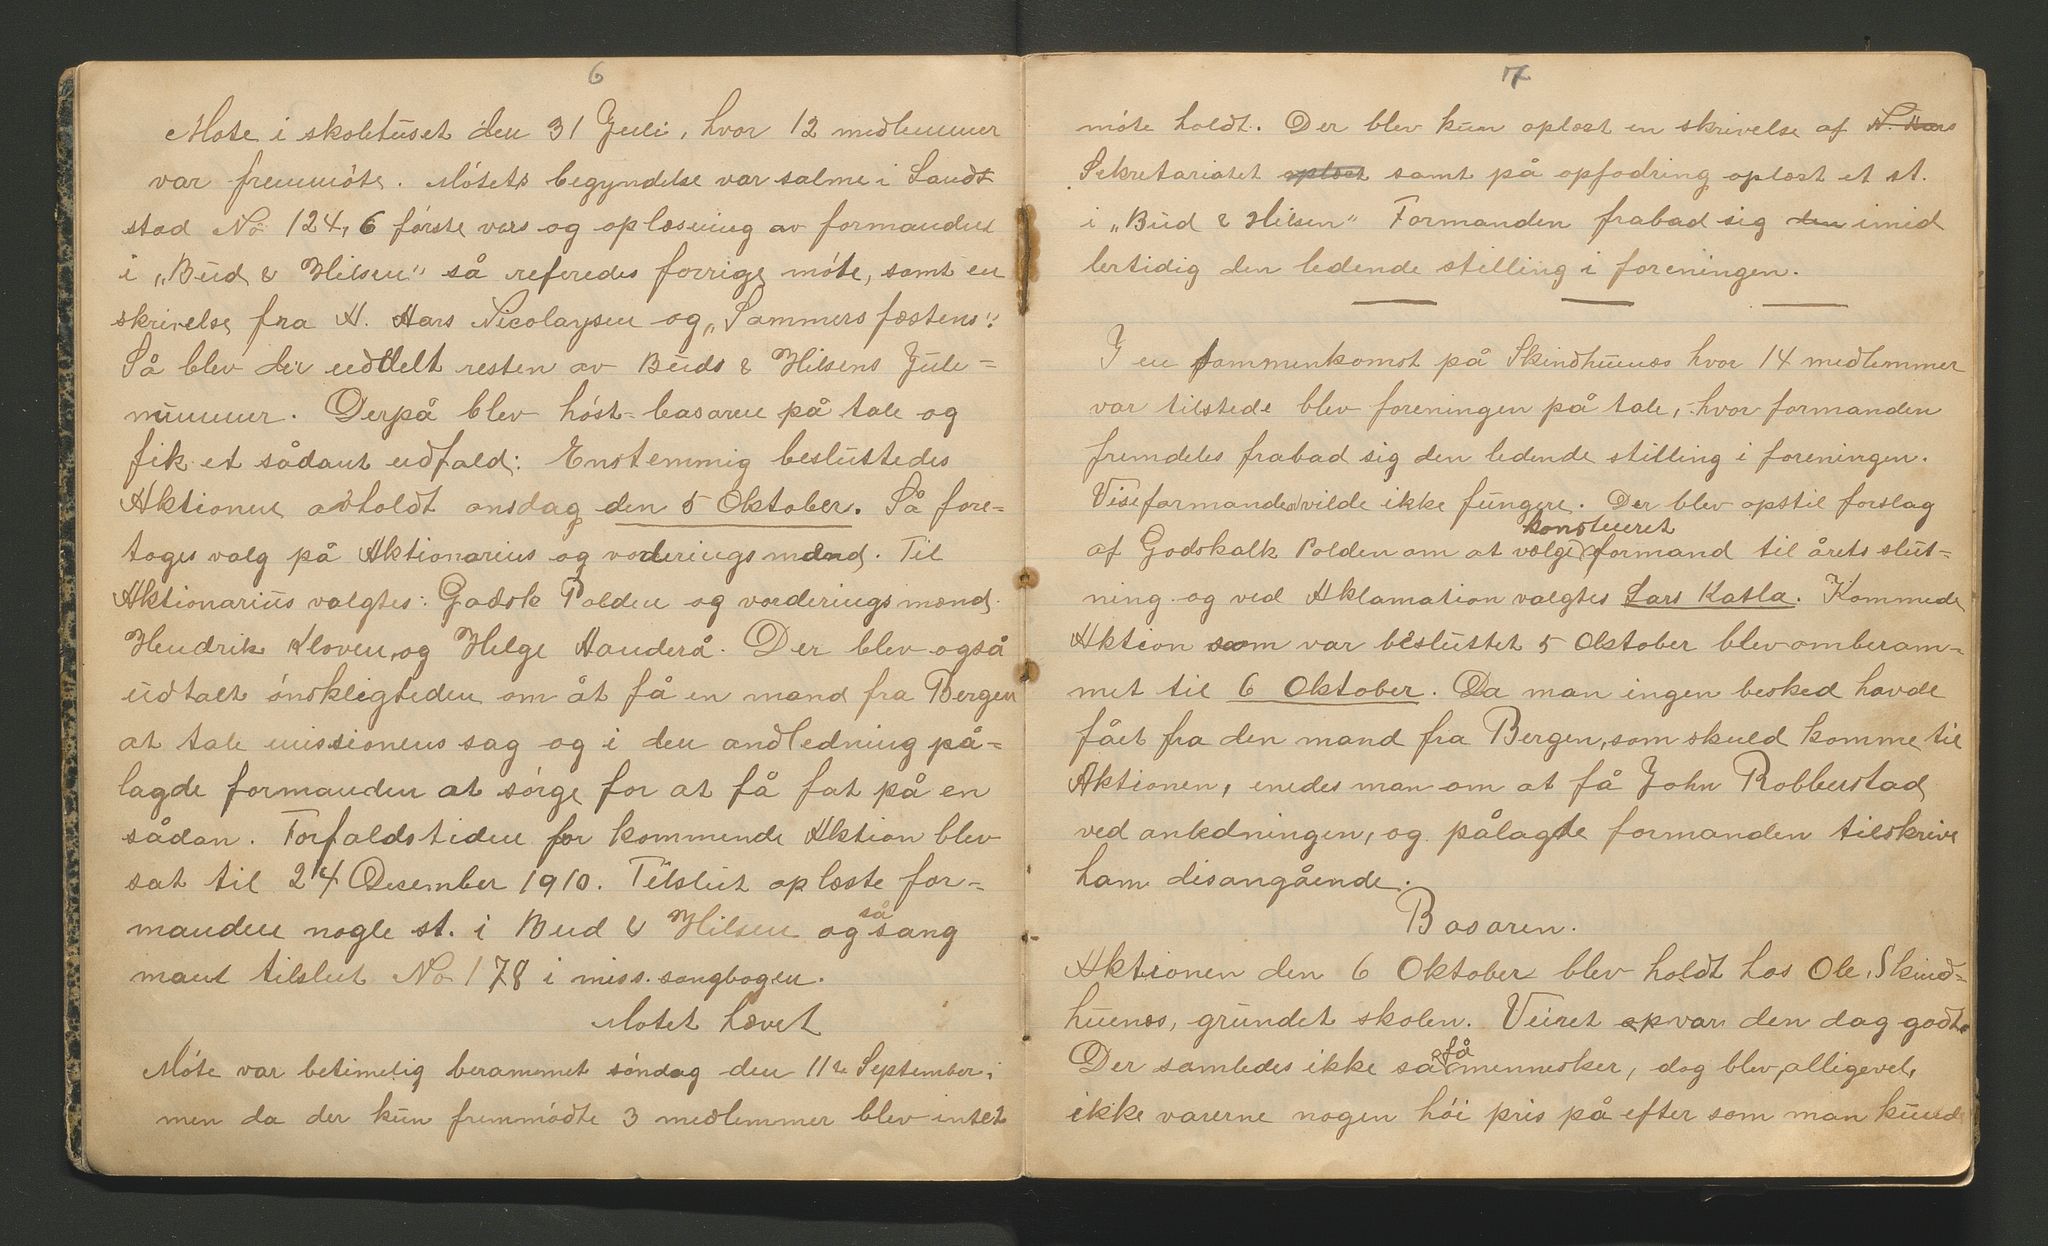 6
Møte i skolehuset den 31 Juli, hvor 12 medlemmer
var fremmøte. Møtets begyndelse var salme i Landt
stad No 124, 6 første vers og oplæsning av formanden
i „Bud & Hilsen" så referedes forrige møte, samt en
skrivelse fra H. Aars Nicolaysen og „Sammers fæstens".
Så blev der uddelt resten av Buds & Hilsens Jule=
nummer. Derpå blev høst=basaren på tale og
fik et sådant udfald: Enstemmig besluttedes
Aktionen avholdt onsdag den 5 Oktober. Så fore=
toges valg på Aktionarius og vorderingsmænd. Til
Aktionarius valgtes: Godsk Polden og vorderingsmænd
Hendrik Kloven, og Helge Handerå. Der blev også
udtalt ønskligheden om åt få en mand fra Bergen
at tale missionens sag og i den andledning på=
lagde formanden at sørge for at få fat på en
sådan. Forfaldstiden for kommende Aktion blev
sat til 24 Desember 1910. Tilslut oplæste for=
manden nogle st. i Bud & Hilsen og så sang
mant tilslut No 178 i miss. sangbogen.
Møtet hævet
Møte var betimelig berammet søndag den 11te September,
men da der kun fremmødte 3 medlemmer blev intet
7
møte holdt. Der blev kun oplæst en skrivelse af N. Aars
Sekretariatet oplæst samt på opfodring oplæst et st.
i „Bud & Hilsen" Formanden frabad sig den imid
lertidig den ledende stilling i foreningen.
I en sammenkomst på Skindhuenæs hvor 14 medlemmer
var tilstede blev foreningen på tale, hvor formanden
fremdeles frabad sig den ledende stilling i foreningen.
Viseformanden vilde ikke fungere. Der blev opstil forslag
af Godskalk Polden om at vælge konstueret formand til årets slut=
ning og ved Aklamation valgtes Lars Katla. Kommede
Aktion som var besluttet 5 Oktober blev omberam=
met til 6 Oktober. Da man ingen besked havde
fået fra den mand fra Bergen, som skuld komme til
Aktionen, enedes man om at få John Robberstad
ved anledningen, og pålagde formanden tilskrive
ham disangående.
Basaren.
Aktionen den 6 Oktober blev holdt hos Ole. Skind=
huenæs, grundet skolen. Veiret op var den dag godt.
Der samledes ikke så få mennesker, dog blev, alligevel,
ikke varerne nogen høi pris på efter som man kund